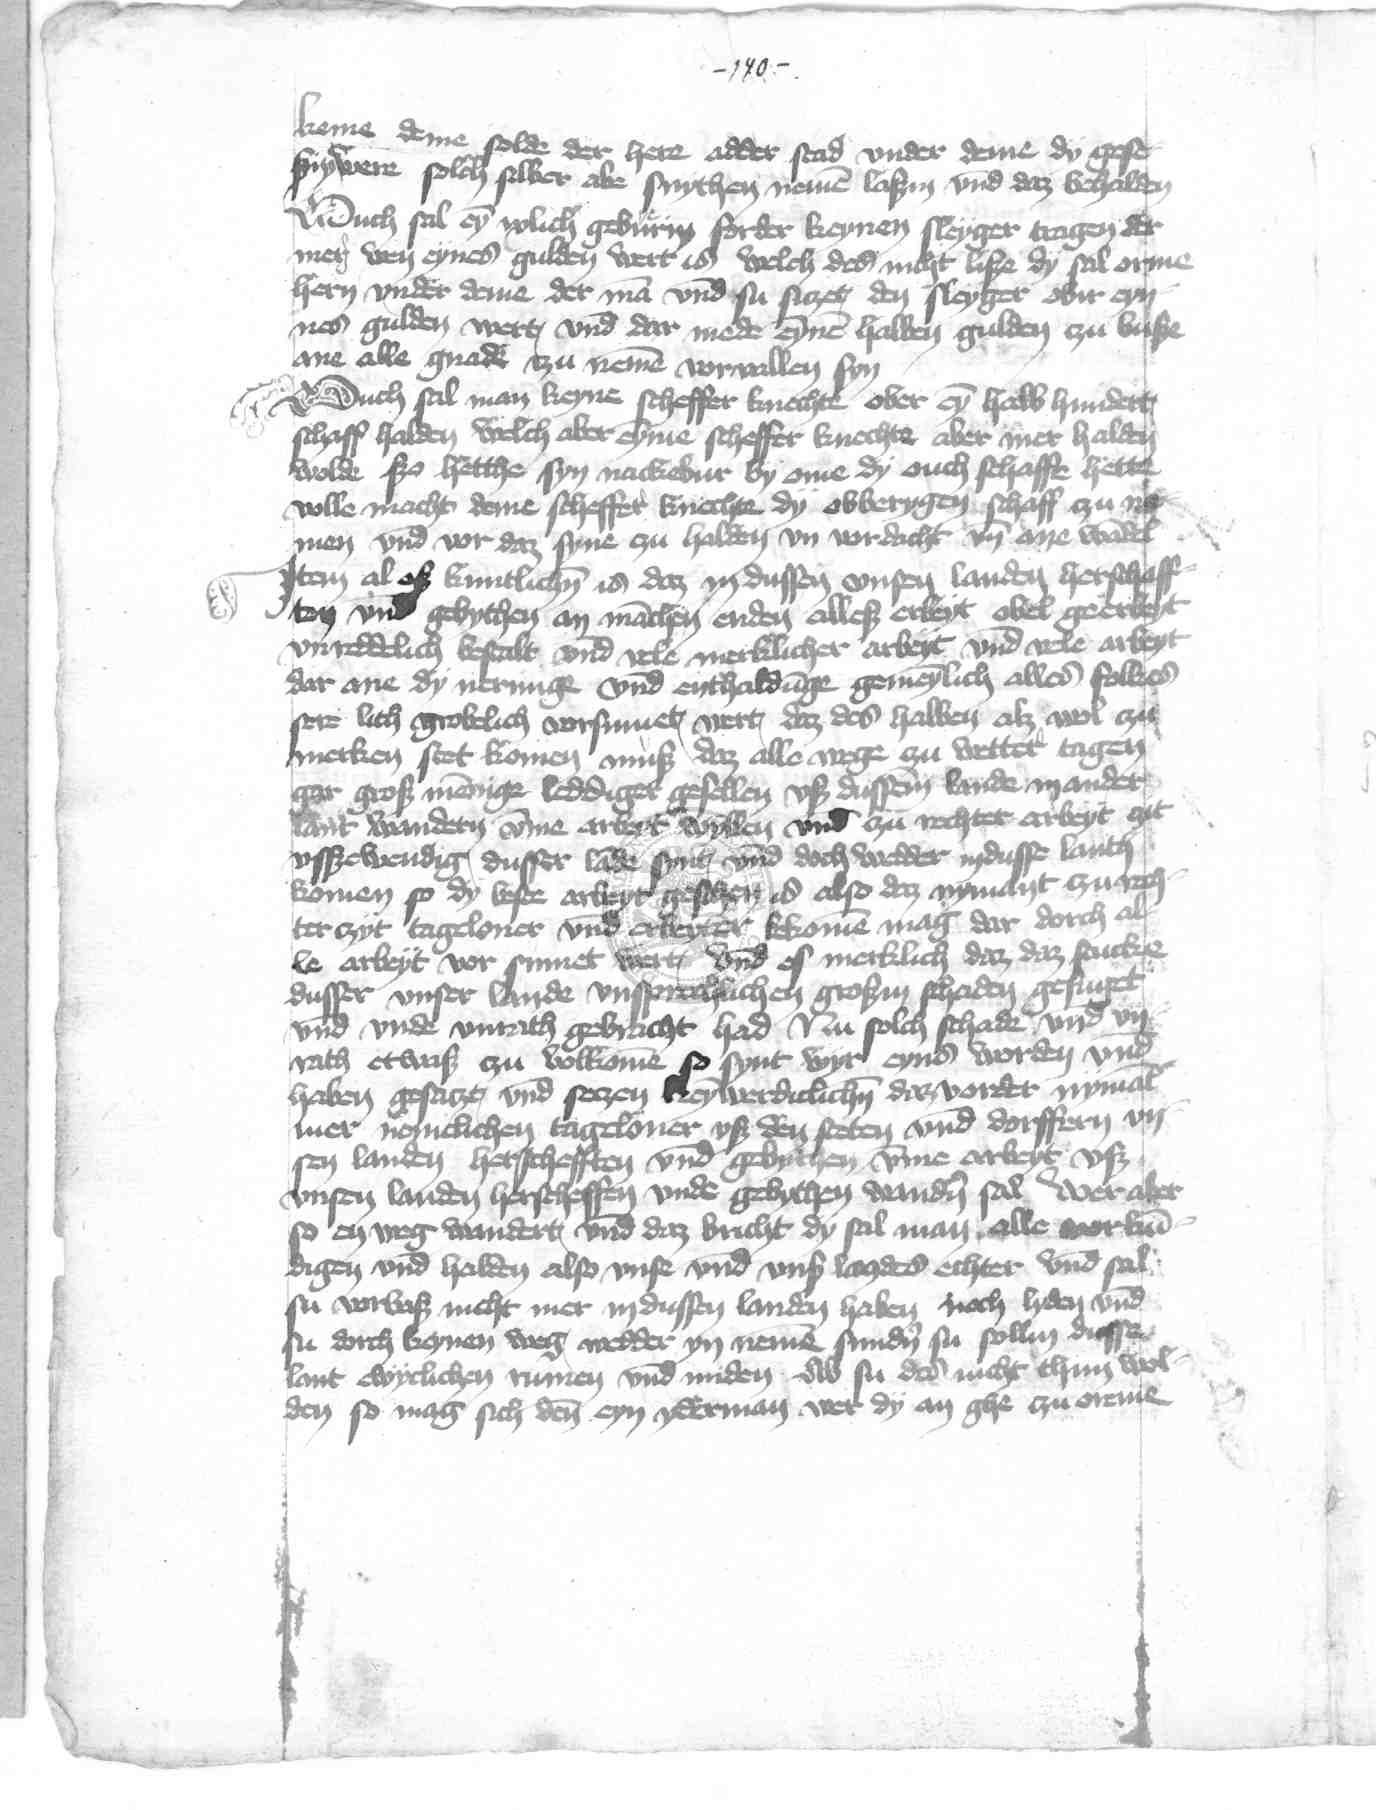 -140-
keme deme solde der here adder stad vnder deme dy gese-
were solch silber abe snythen nemē laßin vnd daz behalden
Ouch sal eȳ yclich geburin forder keynen sleyger tragen der
mer wen eynes gulden wert is welch des nicht liße dy sal orme
hern vnder deme der mā vnd su siczet den sleyger obir eyn-
nes gulden wert vnd dar mede eynē halben gulden zu buße
ane alle gnade czu nemē vorvallen syn
Ouch sal man keyne scheffer knechte ober eȳ halb hundert
schaff halden welch aber eyme scheffer knechte aber mer halden
wolde ßo hetthe syn nackebur by ome dy ouch schaffe hette
volle macht deme scheffer knechte dy obberygen schaff zu ne-
men vnd vor daz syne zu halden vn vordacht vn̄ ane wādel
Item al eß kuntlichn̄ is daz in dussen vnsen landen herschaff-
ten vnd gebythen an māchen enden alleß erbeyt obel geerbeyt
vnreddelich bestalt vnd vele merklicher arbeyt vnd vele arbeyt
dar ane dy nerunge vnd enthaldūge gemeylich alles folkes
sere lith grobelich vorsumet wert daz des halben alz wol zu
merken stet komen muß daz alle wege zu wetter tagen
gar groß mēnige leddiger gesellen vß dussem lande in ander
lant wandern vme arbeyt wyllen vnd zu rechter arbeyt zit
vsszewendig dusser lāde synt vnd doch wedder in dusse lanth
komen so dy beste arbeyt geschen is also daz nymant zu rech-
ter czyt tageloner vnd erbeyter bekomē mag dar dorch al-
le arbeyt vor sumet wert vnd es merklich daz daz stucke
dusser vnser lande vnsprechlichen großin schaden gefuget
vnd vnde vnrath gebracht had Nu solch schade vnd vn-
rath etwaß zu volkome so synt wyr eyns worden vnd
haben gesatzt vnd seczen daz vorder nymāt
mer nemelichen tageloner vß den steten vnd dorffern vn-
sen landen herschefften vnd gebythen vme arbeyt vß
vnsen landen herscheffen vnde gebythen wandn̄ sal Wer aber
so en weg wandert vnd daz bricht dy sal man alle vorkū-
digen vnd halden also vnse vnd vnß landes echter vnd sal
su vorbaß nicht mer in dussen landen haben noch liden vnd
su dorch keynen weg wedder yn nemē sundn̄ su sollin dusse
lant ewyclichen rumen vnd miden Ab su des nicht thun wol-
den so mag sich den eyn yderman wer dy an ghe zu oreme